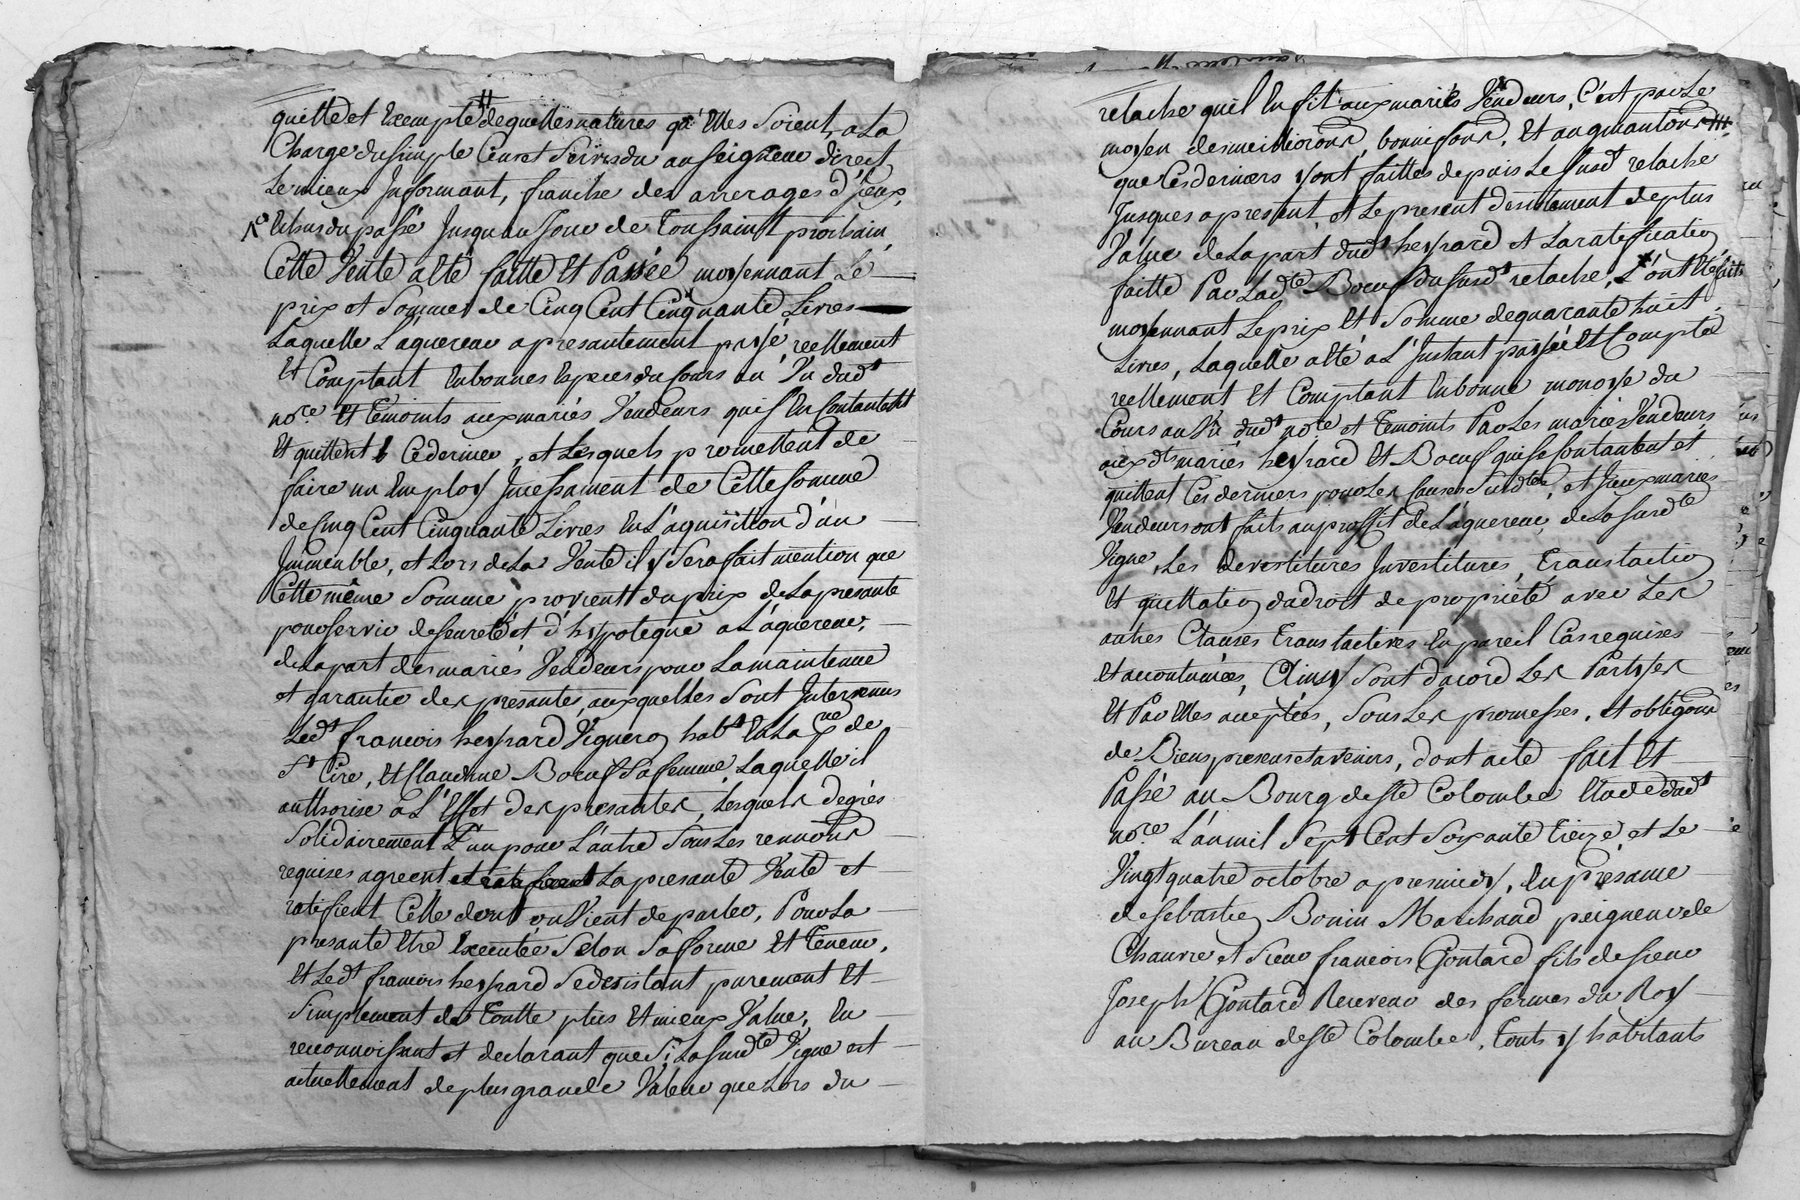 quitte et Exempte de quelles natures qu'Elles Soient, a La
Charge du simple Cens et Servis du au seigneur direct
Le mieux Informant, franche des arrerages d'jeux,
Et dus du passé Jusqu'au Jour de Toussaint prochain
Cette Vente a eté faitte Et Passée moyennant Le
prix et Somme de Cinq Cent Cinquante Livres
Laquelle L'aquereur a presantement payé reellement
Et Comptant En bonnes Especes du Cours au Vu dudt
nore. Et Temoints aux mariés Vendeurs qui s'En Contantent
Et quittent Ce dernier, et Lesquels promettent de
faire un Employ Jncessament de Cette somme
de Cinq Cent Cinquante Livres En L'aquisition d'un
Jmmeuble, et Lors de La Vente il y Sera fait mention que
Cette même Somme provient du prix de La presante
pour servir de seureté et d'hypoteque a L'aquereur,
de La part des mariés Vendeurs pour La maintenue
et garantie des presantes, auxquelles Sont Intervenus
Ledt françois heyrard Vigneron habt En La pnne de
St Cire, Et Claudine Boeuf Sa femme, Laquelle il
authorise a L'Effet des presantes, Lesquels de grés
Solidairement L'un pour L'autre Sous Les renonons
requises agreent et ratiffient La presante Vente et
ratifient Celle dont on Vient de parler, Pour La
presante Etre Executée Selon Sa forme Et Teneur,
Et Ledt françois heyrard Se desistant purement Et
Simplement de Toutte plus Et mieux Value, En
reconnoissant et declarant que Si La Susdte Vigne est
actuellement de plus grande Valeur que Lors du
relache quil En fit aux mariés Vendeurs, C'est par Le
moyen des meilliorons, bonnifons, Et augmantons
que Ces derniers y ont faittes depuis Le Susdt relache
Jusques apresent, et Le present desistement de plus
Value de La part dudt heyrard et La ratification
faitte Par Ladte Boeuf du Susdt relache, L'ont Eté faits
moyennant Le prix Et Somme de quarante huit
Livres, Laquelle a eté a L'Jnstant payée Et Comptée
reellement Et Comptant En bonne monoye du
Cours au Vu dudt nore et Temoints Par Les mariés Vendeurs
aux dts mariés heyrard Et Boeuf qui se contantent et
quittent Ces derniers pour Les causes Susdtes, et Jceux mariés
Vendeurs ont faits au proffit de L'aquereur, de La Susdte
Vigne, Les devestitures Investitures, Translaction
Et quittation du droit de propriété avec Les
autres Clauses Translactives En pareil Cas requises
Et accoutumées, Ainsy Sont d'acord Les Partyes
Et Par Elles acceptées, Sous Les promesses, Et obligons
de Biens presens et avenirs, dont acte fait Et
Passé au Bourg de Ste Colombe Etude dudt
nore. L'an mil Sept Cent Soixante Treize, et Le
Vingt quatre octobre apres midy, En presance
de Sebastien Bonin Marchand peigneur de
Chanvre et Sieur françois Gontard fils de sieur
Joseph Gontard Receveur des fermes du Roy
au Bureau de Ste Colombe, Touts y habitants